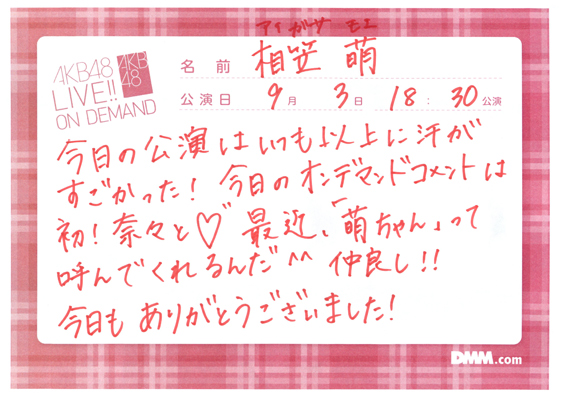 アイガサ モエ
AKB48
LIVE!!
ON DEMAND
AKB
48
名 前 相笠 萌
公演日 9月 3日 18:30公演
今日の公演はいつも以上に汗が
すごかった! 今日のオンデマンドコメントは
初! 奈々と♡ 最近、「萌ちゃん」って
呼んでくれるんだ^^ 仲良し!!
今日もありがとうございました!
DMM.com